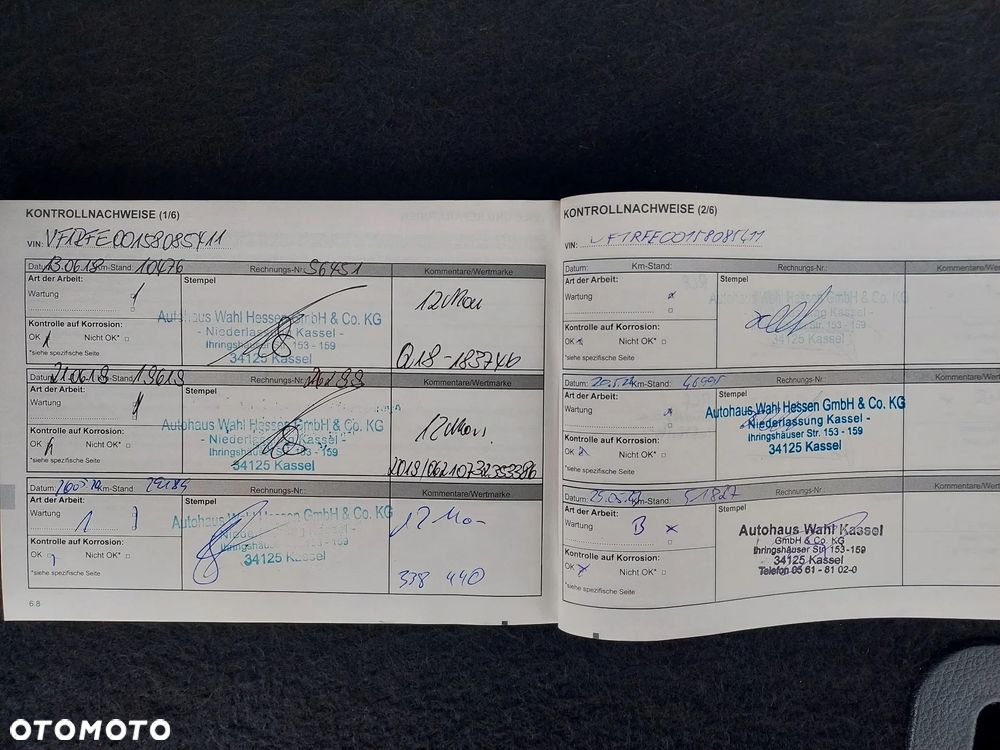 KONTROLLNACHWEISE (1/6)
VIN: VF1RFE00158085411
Datum: 13.06.18 Km-Stand: 10476 Rechnungs-Nr.: 56451 Kommentare/Wertmarke
Art der Arbeit: Stempel
Wartung
12 Mon
Kontrolle auf Korrosion:
OK Nicht OK*
*siehe spezifische Seite
Autohaus Wahl Hessen GmbH & Co. KG
- Niederlassung Kassel -
Ihringshäuser Str. 153 - 159
34125 Kassel
Datum: Km-Stand: Rechnungs-Nr.: Kommentare/Wertmarke
Art der Arbeit: Stempel
Wartung
12 Mon.
Kontrolle auf Korrosion:
OK Nicht OK*
*siehe spezifische Seite
Autohaus Wahl Hessen GmbH & Co. KG
- Niederlassung Kassel -
Ihringshäuser Str. 153 - 159
34125 Kassel
Datum: Km-Stand: Rechnungs-Nr.: Kommentare/Wertmarke
Art der Arbeit: Stempel
Wartung
12 Mo
Kontrolle auf Korrosion:
OK Nicht OK*
*siehe spezifische Seite
Autohaus Wahl Hessen GmbH & Co. KG
Ihringshäuser Str. 153 - 159
34125 Kassel
338 440
6.8
KONTROLLNACHWEISE (2/6)
VIN: VF1RFE00158085411
Datum: Km-Stand: Rechnungs-Nr.: Kommentare/Wertmarke
Art der Arbeit: Stempel
Wartung
Kontrolle auf Korrosion:
OK Nicht OK*
*siehe spezifische Seite
Datum: Km-Stand: Rechnungs-Nr.: Kommentare/Wertmarke
Art der Arbeit: Stempel
Wartung
Kontrolle auf Korrosion:
OK Nicht OK*
*siehe spezifische Seite
Autohaus Wahl Hessen GmbH & Co. KG
- Niederlassung Kassel -
Ihringshäuser Str. 153 - 159
34125 Kassel
Datum: Km-Stand: 51827 Rechnungs-Nr.: Kommentare/Wertmarke
Art der Arbeit: Stempel
Wartung B
Kontrolle auf Korrosion:
OK Nicht OK*
*siehe spezifische Seite
Autohaus Wahl Kassel
GmbH & Co. KG
Ihringshäuser Str. 153 - 159
34125 Kassel
Telefon 05 61 - 81 02-0
OTOMOTO